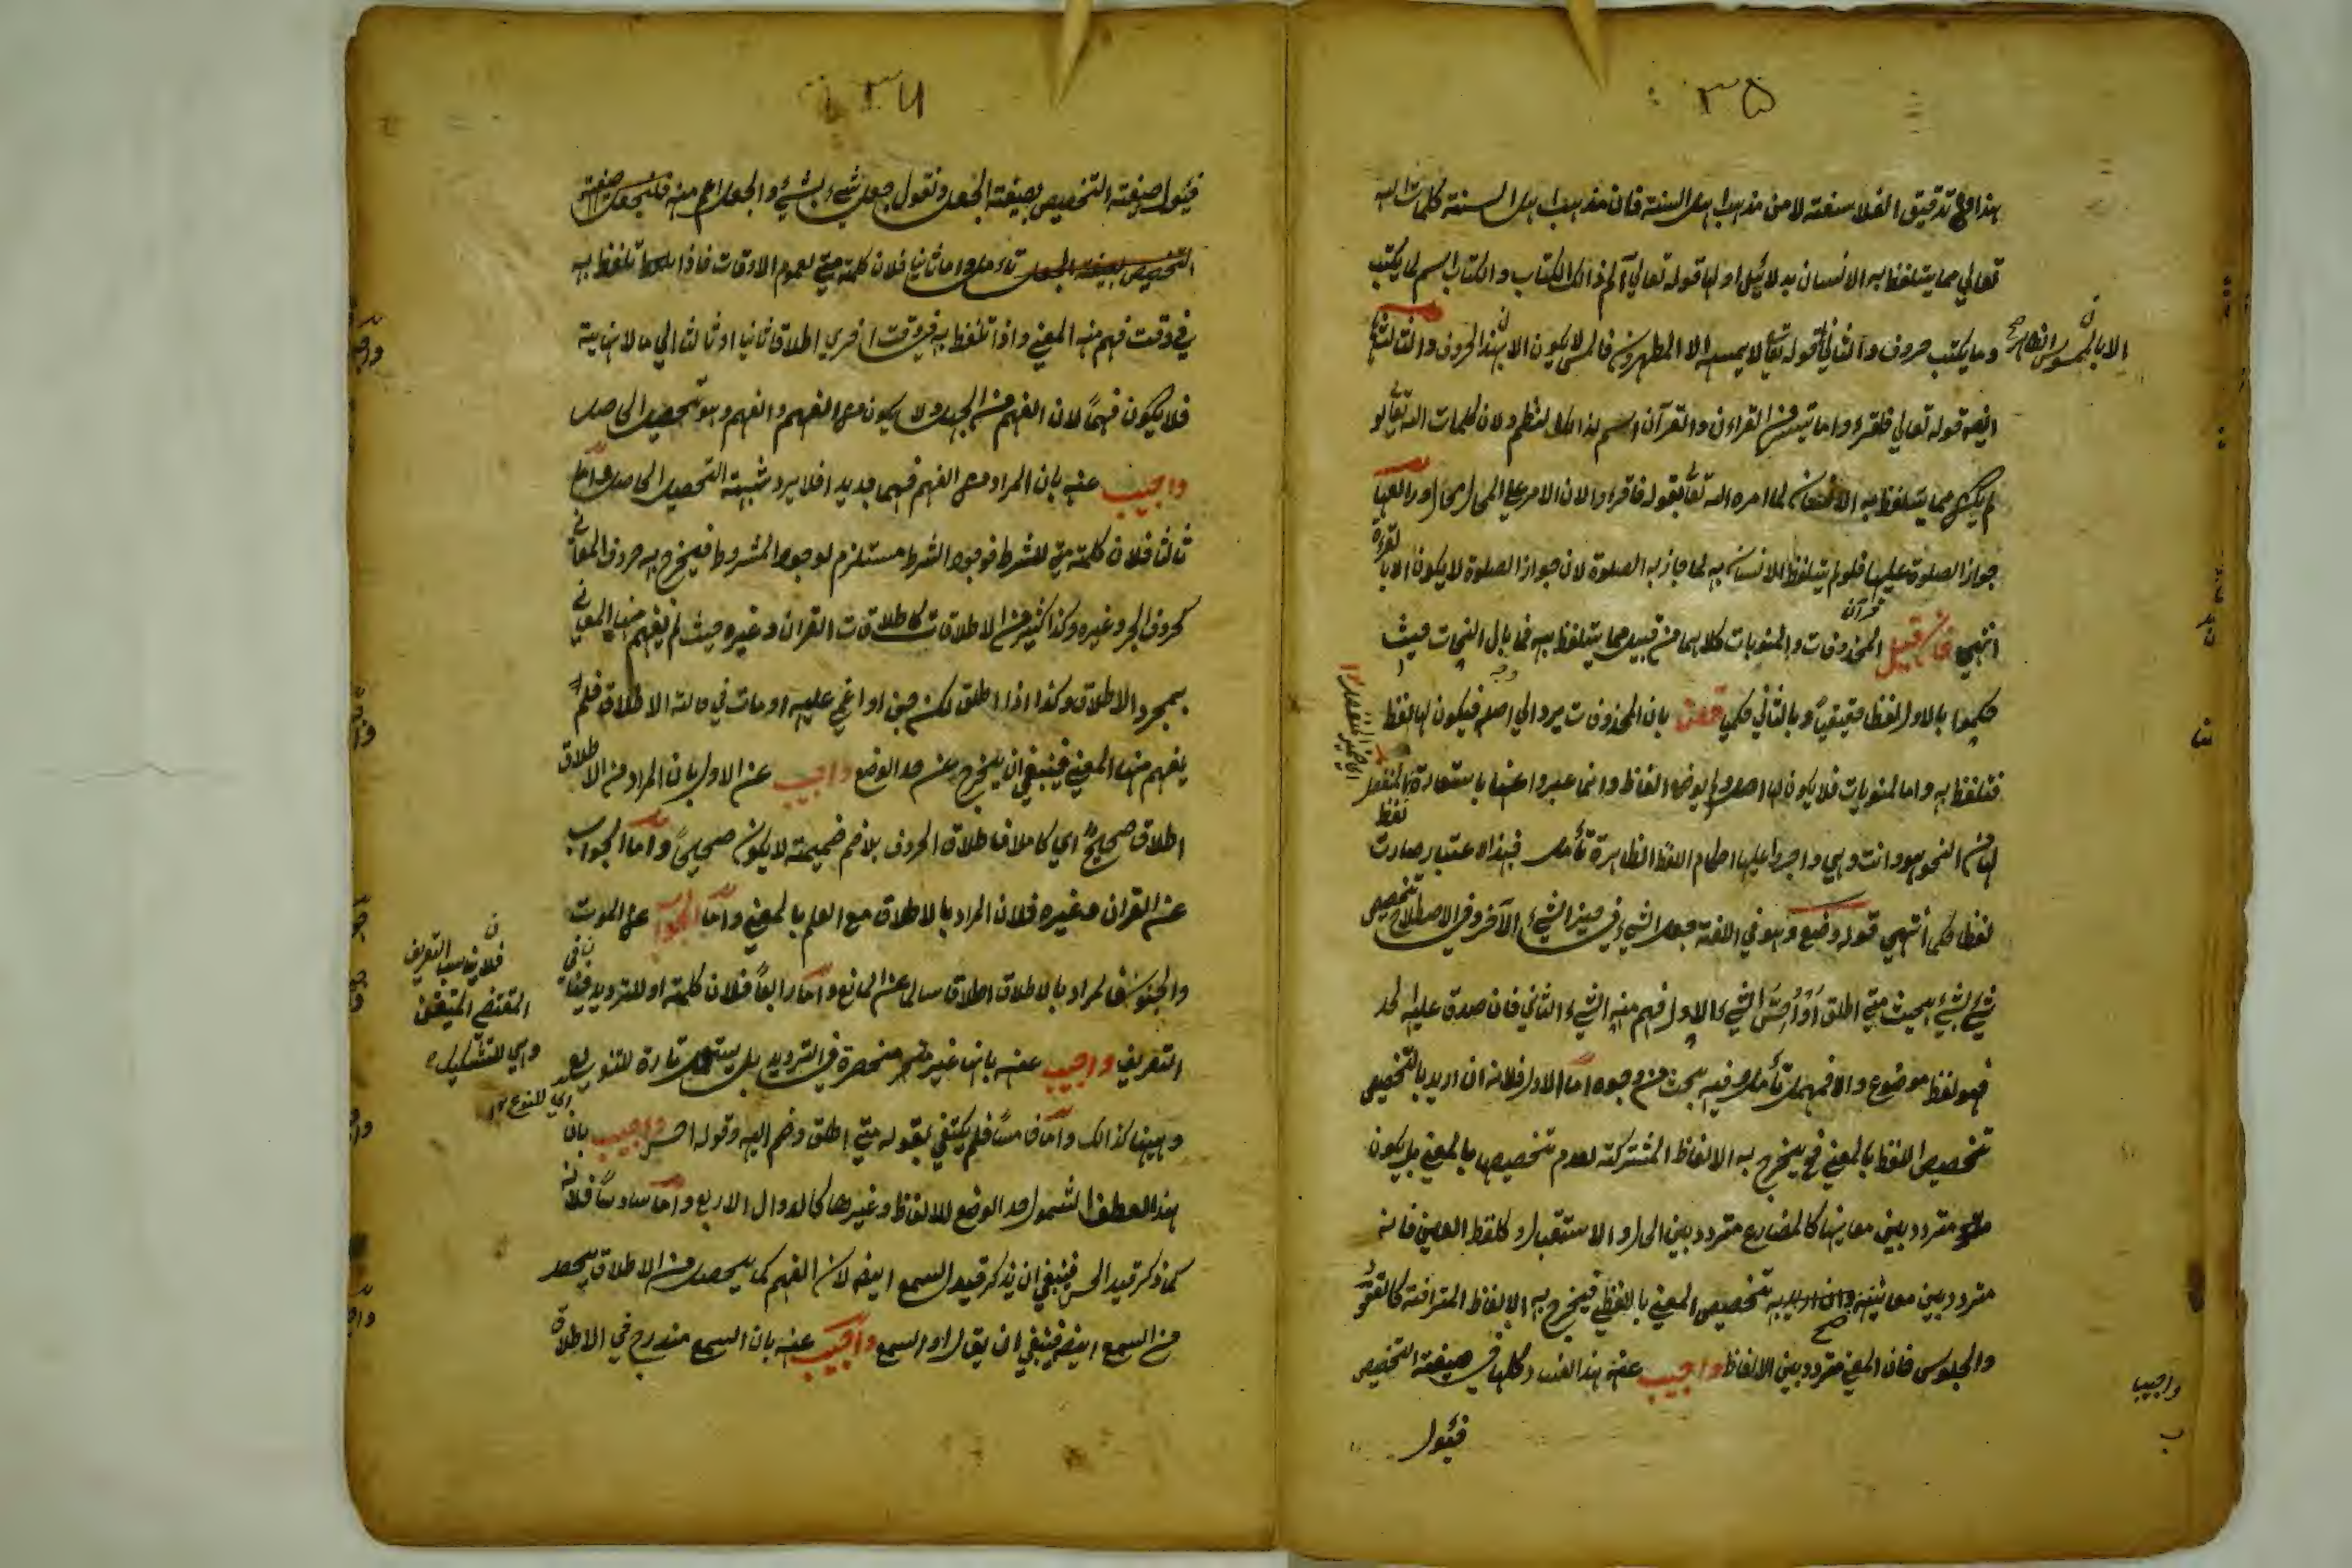 ٣٥
هذا مع تدقيق الفلاسفة لا من مذهب اهل السنة فان مذهب اهل السنة كلمات الله
تعالي مما يتلفظ به الانسان بدلائل اولها قوله تعالي آلم ذالك الكتاب والكتاب اسم لما يكتب
وما يكتب حروف والثاني قوله تعالي لا يمسه الا المطهرون فالمس لا يكون الا بهذا الحروف والثالث
ايضه قوله تعالي فاقرؤا ما تيسر من القراءن والقرآن اسم لنظم ولان كلمات الله تعالي لو
لم يكن مما يتلفظ به الانسان لما امره الله تعالي بقوله فاقرؤا لان الامر علي المحال محال ورابعها
جواز الصلوة عليها فلو لم يتلفظ الانسان به لما جاز به الصلوة لان جواز الصلوة لا يكون الا بالقراءة
انتهي فان قيل المحذوفات والمنويات كلاهما من قبيل مما يتلفظ به فما بال النحات حيث
حكموا بالاول لفظا حقيقيا وبالثاني حكمي قلت بان المحذوفات يرد الي اصله فيكون لها لفظ
فتلفظ به واما المنويات فلا يكون لها اصل ولم يوضع الفاظ وانما عبروا عنها باستعارة المنفصل
لها من النحو هو وانت وهي واجروا عليها احكام اللفظ الظاهرة تأمل فبهذا الاعتبار صارت
لفظا حكمي أنتهي قوله وضع وهو في اللغة جعل الشيء في حيز الشيء الآخر وفي الاصطلاح تخصيص
شيء بشيء بحيث متي اطلق او أحس الشيء الاول فهم منه الشيء الثاني فان صدق عليه الحد
فهو لفظ موضوع والا فمهمل تأمل وفيه بحث من وجوه اما الاول فلانه ان اريد بالتخصيص
تخصيص اللفظ بالمعني فح يخرج به الالفاظ المشتركة لعدم تخصيصها بالمعني بل يكون
متردد بين معانيها كالمضارع متردد بين الحال والاستقبال وكلفظ العين فانه
متردد بين معانيه وان اريد به تخصيص المعني باللفظ فيخرج به الالفاظ المترادفة كالقعود
والجلوس فان المعني متردد بين الالفاظ واجيب عنه هذا الفساد كلها في صيغة التخصيص
فيئول
الا بالملموس الظاهر صح
واجيب
٣٦
فيئول صيغة التخصيص بصيغة الجعل ونقول جعل شيء بشيء والجعل اعم منه فليجعل صيغة
التخصيص بصيغة الجعل تأمل واما ثانيا فلان كلمة متي لعموم الاوقات فاذا تلفظ به
في وقت فهم منه المعني واذا تلفظ به في وقت اخري اطلاقا ثانيا او ثالثا الي ما لا نهاية
فلا يكون فهماً لان الفهم من الجهل ولا يكون من الفهم والفهم وهو تحصيل الحاصل
واجيب عنه بان المراد من الفهم فهما جديدا فلا يرد شبهة التحصيل الحاصل واما
ثالثا فلان كلمة متي للشرط فوجود الشرط مستلزم لوجود المشروط فيخرج به حروف المعاني
كحروف الجر وغيره وكذا كثير من الاطلاقات كاطلاقات القران وغيره حيث لم يفهم منها المعني
بمجرد الاطلاق وكذا اذا اطلق لكن جن او اغمي عليه او مات في حالة الاطلاق فلم
يفهم منها المعني فينبغي ان يخرج عن حد الوضع واجيب عن الاول بان المراد من الاطلاق
اطلاق صحيح اي كاملا فاطلاق الحروف بلا ضم ضميمة لا يكون صحيحاً واما الجواب
عن القران وغيره فلان المراد بالاطلاق مع العلم بالمعني واما الجواب عن الموت
والجنون فالمراد بالاطلاق اطلاق سالما عن المانع واما رابعاً فلان كلمة او للترديد فينافي
التعريف واجيب عنه بانها غير منحصرة في الترديد بل يستعمل تارة للتنويع
وههنا كذالك واما خامساً فلم يكتفي بقوله متي اطلق وضم اليه وقوله احس واجيب بان
هذا العطف لشمول حد الوضع للالفاظ وغيرها كالدوال الاربع واما سادساً فلانه
كما ذكر قيد الحس فينبغي ان يذكر قيد السمع ايضه لان الفهم كما يحصل من الاطلاق يحصل
من السمع ايضه فينبغي ان يقال او السمع واجيب عنه بان السمع مندرج في الاطلاق
فلا يناسب التعريف
المقتضي
وهي للتشكيك
اي للتنوع